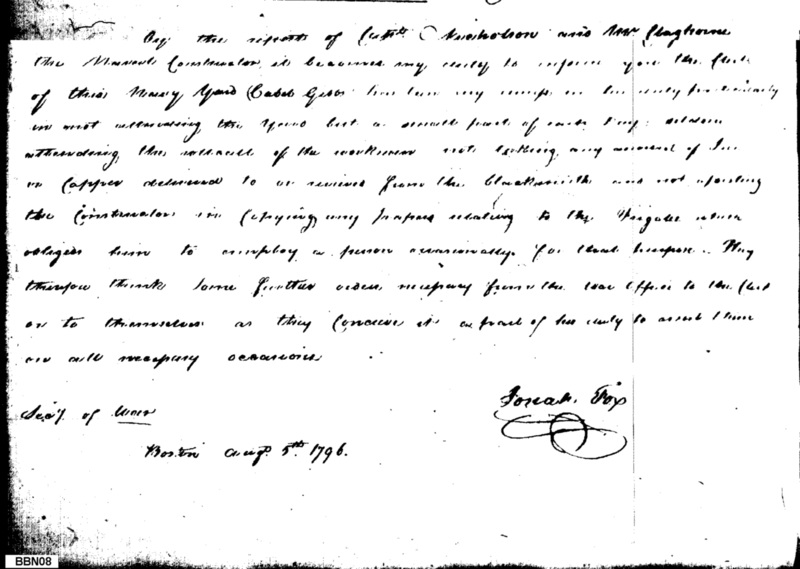 By the reports of Capt. Nicholson and Mr Claghorne
the Naval Constructor it becomes my duty to inform you the Clerk
of this Navy Yard Caleb Gibbs has been very remiss in his duty particularly
in not attending the Yard but a small part of each day, seldom
attending the rollcall of the workmen not taking any account of Iron
or Copper delivered to or received from the blacksmith and not assisting
the Constructor in Copying any papers relating to the Frigate which
obliges him to employ a person occasionally for that purpose. They
therefore think some further orders necessary from the War Office to the Clerk
or to themselves as they Conceive it a part of his duty to assist them
on all necessary occasions
Josiah Fox
Secy of War
Boston Augt 5th 1796.
BBN08